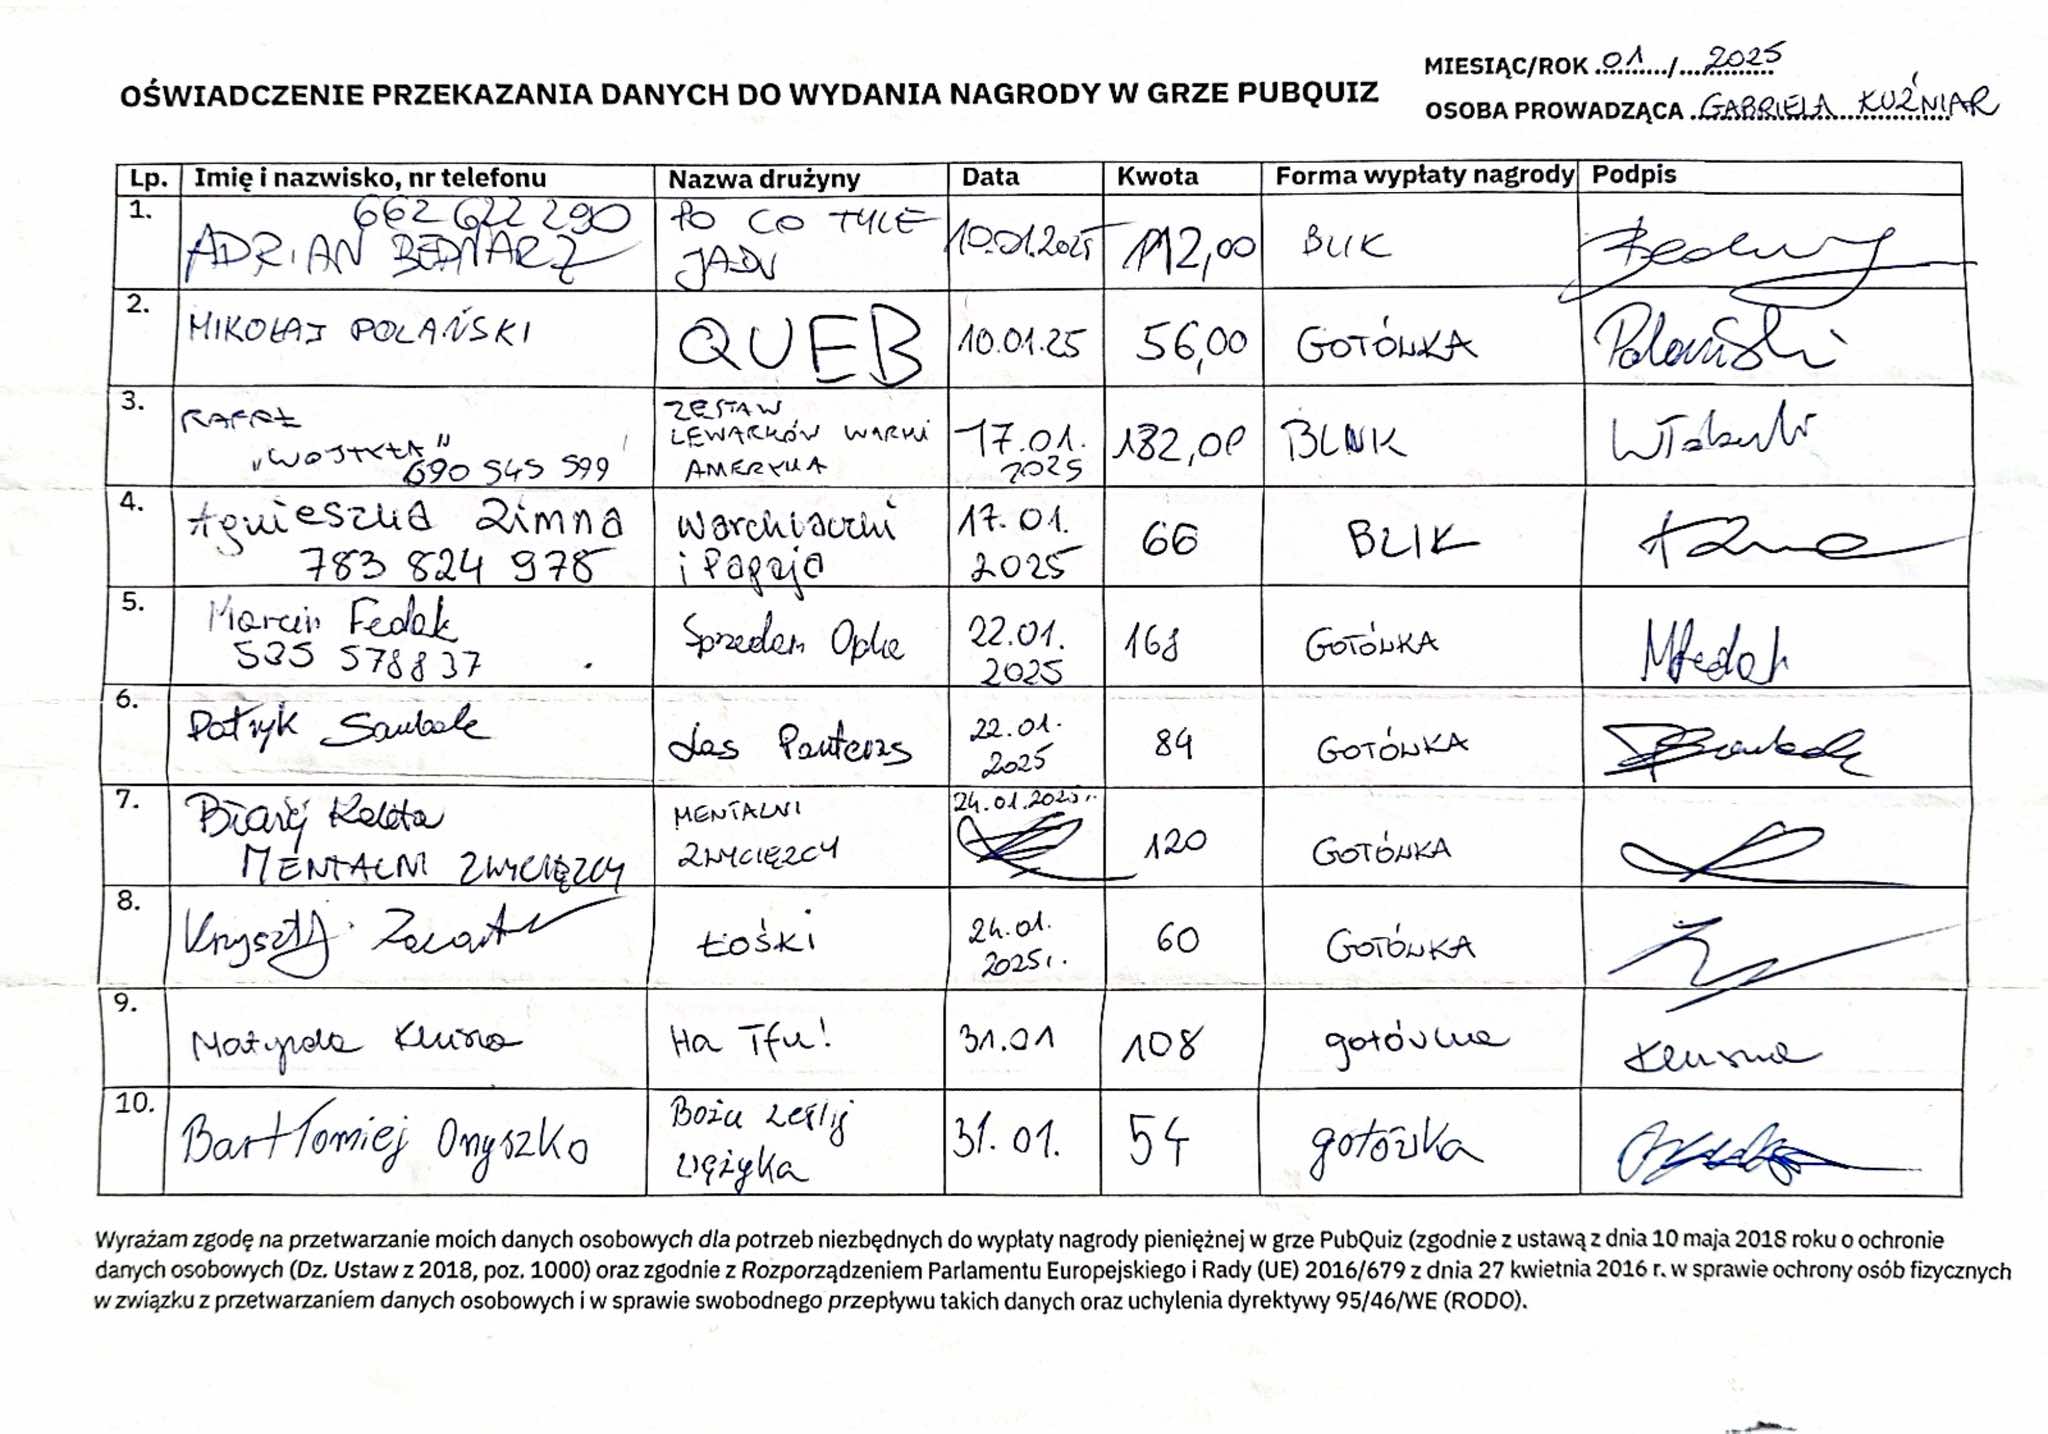 MIESIĄC/ROK 01/2025
OŚWIADCZENIE PRZEKAZANIA DANYCH DO WYDANIA NAGRODY W GRZE PUBQUIZ
OSOBA PROWADZĄCA GABRIELA KUŹNIAR
Lp. Imię i nazwisko, nr telefonu Nazwa drużyny Data Kwota Forma wypłaty nagrody Podpis
1. 662 622 290 ADRIAN BEDNARZ PO CO TYLE JADU 10.01.2025 112,00 BLIK
2. MIKOŁAJ POLAŃSKI QUEB 10.01.25 56,00 GOTÓWKA Polański
3. RAFAŁ „WOJTYŁA" 690 545 599 ZESTAW LEWARKÓW WARKI AMERYKA 17.01.2025 132,00 BLIK
4. Agnieszka Zimna 783 824 978 Warchlaczki i Papaja 17.01.2025 66 BLIK
5. Marcin Fedak 535 578837 Sprzedam Opla 22.01.2025 168 GOTÓWKA MFedak
6. Patryk Las Panteras 22.01.2025 84 GOTÓWKA
7. Błażej Kaleta MENTALNI ZWYCIĘZCY MENTALNI ZWYCIĘZCY 24.01.2025r. 120 GOTÓWKA
8. Krysztof ŁOŚKI 24.01.2025r. 60 GOTÓWKA
9. Matylda Kluska Ha Tfu! 31.01 108 gotówka Kluska
10. Bartłomiej Onyszko Bożu ześlij 31.01. 54 gotówka
Wyrażam zgodę na przetwarzanie moich danych osobowych dla potrzeb niezbędnych do wypłaty nagrody pieniężnej w grze PubQuiz (zgodnie z ustawą z dnia 10 maja 2018 roku o ochronie
danych osobowych (Dz. Ustaw z 2018, poz. 1000) oraz zgodnie z Rozporządzeniem Parlamentu Europejskiego i Rady (UE) 2016/679 z dnia 27 kwietnia 2016 r. w sprawie ochrony osób fizycznych
w związku z przetwarzaniem danych osobowych i w sprawie swobodnego przepływu takich danych oraz uchylenia dyrektywy 95/46/WE (RODO).